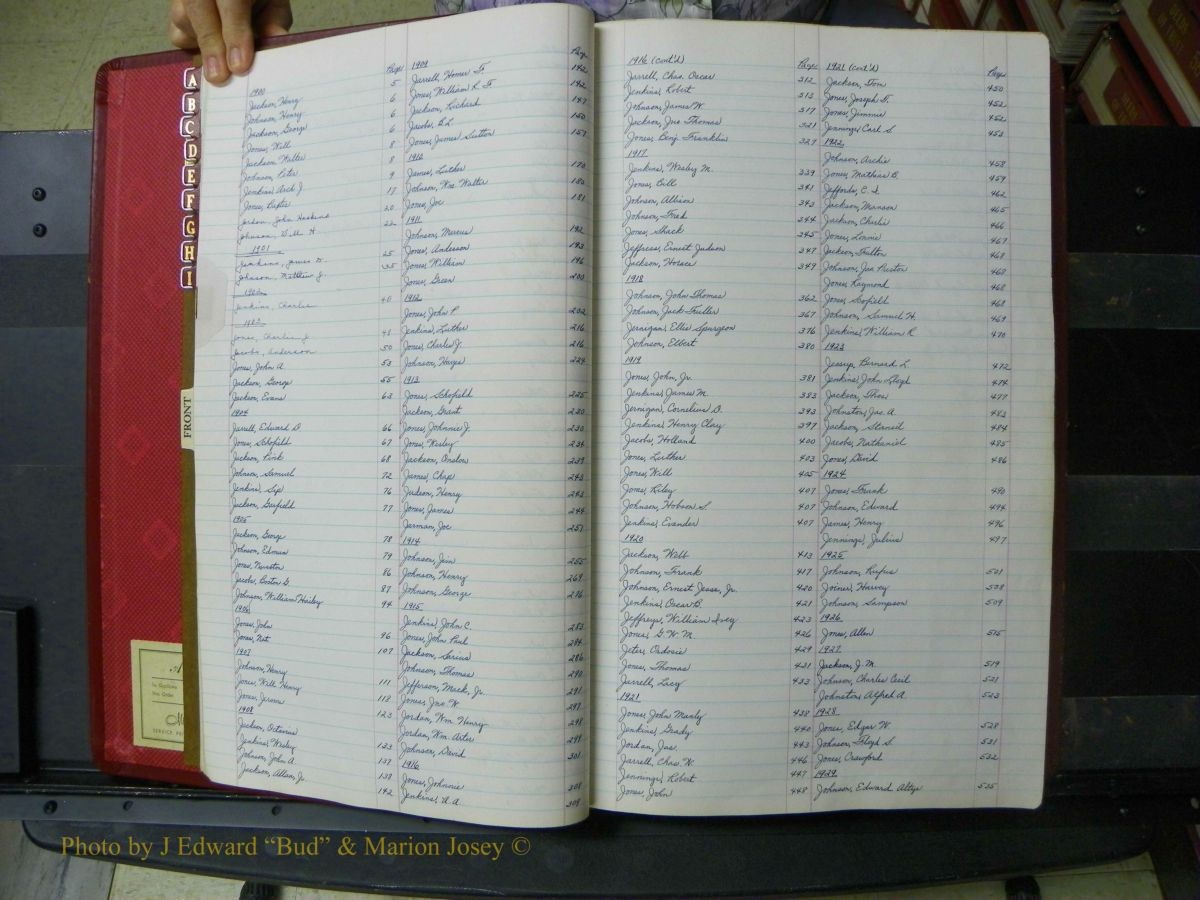 A
B
C
D
E
F
G
H
I
FRONT
Page
1900
Jackson, Henry 5
Johnson, Henry 6
Jackson, George 6
Jones, Will 6
Jackson, Walter 8
Johnson, Peter 8
Jenkins, Arch J. 9
Jones, 17
Jordan, John Haskins 20
Johnson, Will H. 22
1901
Jenkins, James 25
Johnson, Matthew J. 35
1902
Jenkins, Charlie 40
1903
Jones, Charlie J. 43
Jacobs, Anderson 50
Jones, John A. 53
Jackson, George 55
Jackson, Evans 63
1904
Jarrell, Edward D. 66
Jones, Schofield 67
Jackson, Pink 68
Johnson, Samuel 72
Jenkins, 76
Jackson, Garfield 77
1905
Jackson, George 78
Johnson, Edmun 79
Jones, Thurston 86
Jacobs, Boston G. 87
Johnson, William Hailey 94
1906
Jones, John 96
Jones, Nat 107
1907
Johnson, Henry 111
Jones, Will Henry 118
Jones, Jerome 123
1908
Jackson, Octavius 133
Jenkins, Wesley 137
Johnson, John A. 138
Jackson, Allan, Jr. 142
Page
1909
Jarrell, Homer F. 142
Jones, William R. F. 142
Jackson, Richard 147
Jacobs, E.L. 150
Jones, James Sutton 157
1910
James, Luther 170
Johnson, Wm. Walter 180
Jones, Joe 181
1911
Johnson, Marcus 192
Jones, Anderson 193
Jones, William 196
Jones, Green 200
1912
Jones, John P. 202
Jenkins, Luther 216
Jones, Charles J. 216
Johnson, Hayes 224
1913
Jones, Schofield 225
Jackson, Grant 230
Jones, Johnnie J. 230
Jones, Wesley 234
Jackson, Onslow 239
James, Chap 243
Judson, Henry 243
Jones, James 244
Jarman, Joe 251
1914
Johnson, Jim 255
Johnson, Henry 269
Johnson, George 276
1915
Jenkins, John C. 283
Jones, John Paul 284
Jackson, 286
Johnson, Thomas 290
Jefferson, Mack, Jr. 291
Jones, Jno. W. 297
Jordan, Wm. Henry 298
Jordan, Wm. Artos 299
Johnson, David 301
1916
Jones, Johnnie 308
Jenkins, A.A. 309
Page
1916 (cont'd)
Jarrell, Chas. Oscar 312
Jenkins, Robert 313
Johnson, James W. 317
Jackson, Jno. Thomas 321
Jones, Benj. Franklin 327
1917
Jenkins, Wesley M. 339
Jones, Bill 341
Johnson, Albian 343
Johnson, Fred 344
Jones, Shack 345
Jeffress, Ernest Judson 347
Jackson, Horace 349
1918
Johnson, John Thomas 362
Johnson, Jack Fuller 367
Jernigan, Ellis Spurgeon 376
Johnson, Elbert 380
1919
Jones, John, Jr. 381
Jenkins, James M. 383
Jernigan, Cornelius D. 393
Jenkins, Henry Clay 397
Jacobs, Holland 400
Jones, Luther 403
Jones, Will 405
Jones, Riley 407
Johnson, Hobson S. 407
Jenkins, Evander 407
1920
Jackson, Will 413
Johnson, Frank 417
Johnson, Ernest Jesse, Jr. 420
Jenkins, Oscar B. 421
Jeffreys, William Ivey 423
Jones, G. W. M. 426
Jeter, Ordovie 429
Jones, Thomas 431
Jarrell, Lucy 433
1921
Jones, John Manly 438
Jenkins, Grady 440
Jordan, Jas. 443
Jarrell, Chas. W. 446
Jennings, Robert 447
Jones, John 448
Page
1921 (cont'd)
Jackson, Tom 450
Jones, Joseph F. 452
Jones, Jimmie 452
Jennings, Carl S. 453
1922
Johnson, Archie 458
Jones, Mathias B. 459
Jeffords, C. I. 462
Jackson, Manson 465
Jackson, Charlie 466
Jones, Lonnie 467
Jackson, Fulton 468
Johnson, Jas. Preston 468
Jones, Raymond 468
Jones, Sofield 468
Johnson, Samuel H. 469
Jenkins, William R. 470
1923
Jessup, Bernard L. 472
Jenkins, John Lloyd 474
Jackson, Thos. 477
Johnston, Jas. A. 483
Jackson, Stancil 484
Jacobs, Nathaniel 485
Jones, David 486
1924
Jones, Frank 490
Johnson, Edward 494
James, Henry 496
Jennings, Julius 497
1925
Johnson, Rufus 501
Joiner, Harvey 508
Johnson, Sampson 509
1926
Jones, Allen 515
1927
Jackson, J. M. 519
Johnson, Charles Cecil 521
Johnston, Alfred A. 523
1928
Jones, Edgar W. 528
Johnson, Floyd S. 531
Jones, Crawford 532
1929
Johnson, Edward Altys 535
Photo by J Edward “Bud” & Marion Josey ©